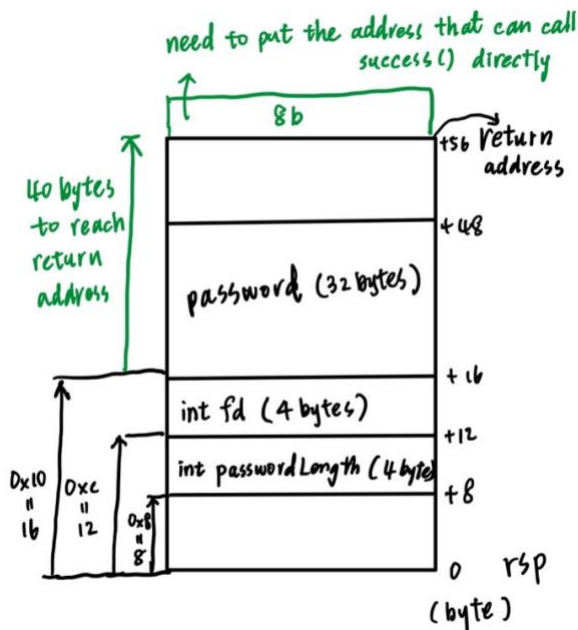 need to put the address that can call
success() directly
8b
+56 return
address
40 bytes
to reach
return
address
+48
password (32 bytes)
+16
int fd (4 bytes)
+12
int passwordLength (4 byte
+8
0x10
=
16
0xc
=
12
0x8
=
8
0 rsp
(byte)